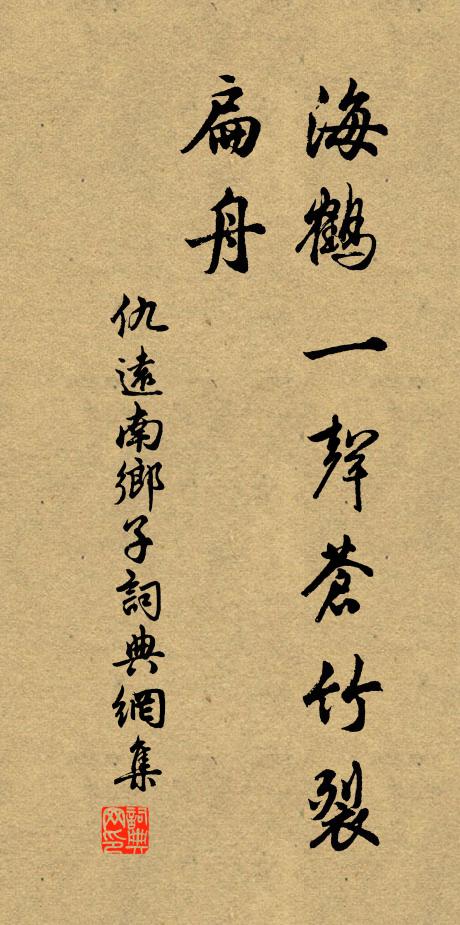 海鶴一聲蒼竹裂
扁舟
仇遠南鄉子詞典網集
詞典網印